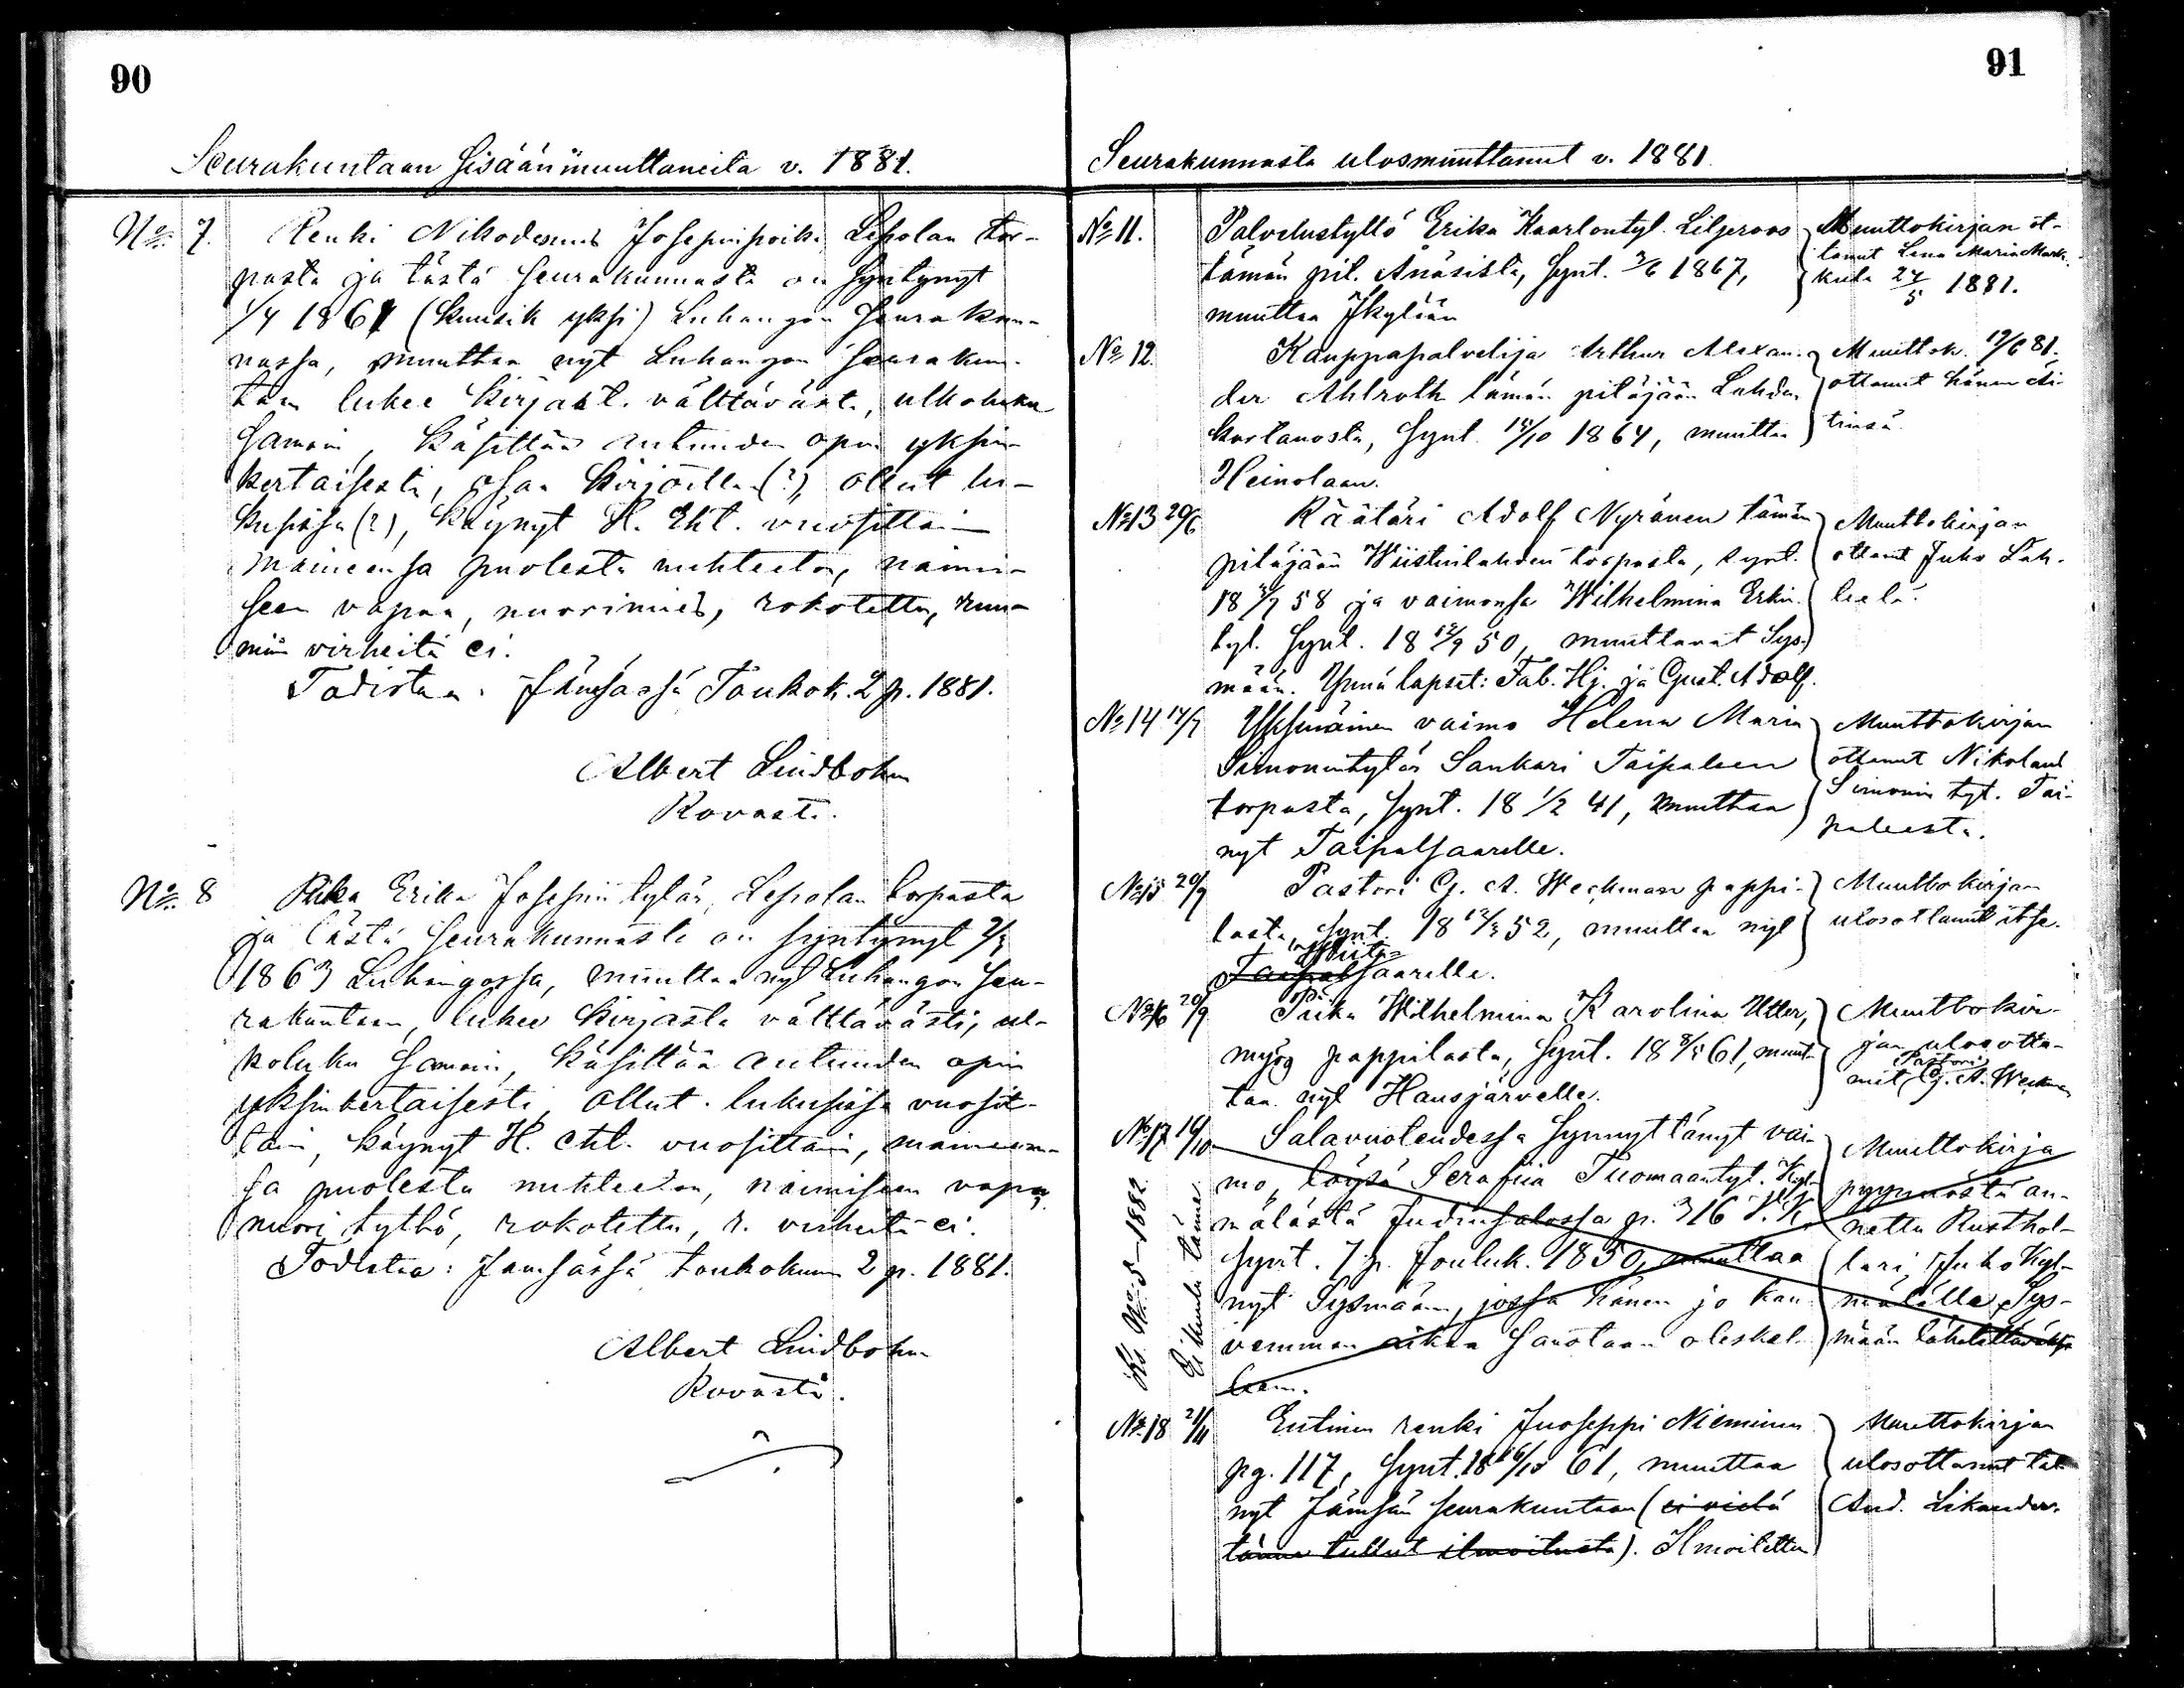 90
Seurakuntaan sisäänmuuttaneita v. 1881.
No. 7. Renki Nikodemus Josepinpoika Lepolan tor-
pasta ja tästä seurakunnasta on syntynyt
1/4 1861 (kuusik yksi) Luhangon seurakun-
nassa, muuttaa nyt Luhangon seurakun-
taan lukee kirjast. välttäväst., ulkoluku
samoin, käsittää autuuden opin yksin-
kertaisesti, osaa kirjoittaa (?), ollut lu-
kusissa (?), käynyt H. Eht. vuosittain
maineensa puolesta nuhteeton, naimi-
seen vapaa, nuorimies, rokotettu, ruu-
miin virheitä ei.
Todistaa: Jämsässä Toukok. 2 p. 1881.
Albert Lindbohm
Rovasti.
No. 8 Piika Erika Josepin tytär, Lepolan torpasta
ja tästä seurakunnasta on syntynyt 2/3
1863 Luhangossa, muuttaa nyt Luhangon seu-
rakuntaan, lukee kirjasta välttävästi, ul-
koluku samoin, käsittää autuuden opin
yksinkertaisesti, ollut lukusissa vuosit-
tain, käynyt H. eht. vuosittain, maineen-
sa puolesta nuhteeton, naimiseen vapaa,
nuori tyttö, rokotettu, r. virheitä ei.
Todistaa: Jämsässä toukokuun 2 p. 1881.
Albert Lindbohm
Rovasti.
91
Seurakunnasta ulosmuuttanut v. 1881.
No 11. Palvelustyttö Erika Kaarlontyt. Liljeroos
tämän pit. Anäsistä, synt. 3/6 1867,
muuttaa Jkylään
Muuttokirjan ot-
tanut Lena Maria Mark-
kula 24/5 1881.
No 12. Kauppapalvelija Arthur Alexan-
der Ahlroth tämän pitäjään Lahden
kartanosta, synt. 18/10 1864, muuttaa
Heinolaan.
Muuttok. 17/6 81.
ottanut hänen äi-
tinsä.
No 13 20/6 Räätäri Adolf Nyränen tämän
pitäjään Wiistinlahden torpasta, synt.
18 3/7 58 ja vaimonsa Wilhelmina Erkin-
tyt. synt. 18 12/9 50, muuttavat Sys-
mään. Ynnä lapset: Fab. Hj. ja Gust. Adolf.
Muuttokirjan
ottanut Juho Läh-
teelä.
No 14 14/7 Yksinäinen vaimo Helena Maria
Simonintytär Sankari Taipaleen
torpasta, synt. 18 1/2 41, muuttaa
nyt Taipalsaarelle.
Muuttokirjan
ottanut Nikolaus
Simonin tyt. Tai-
paleesta.
No 15 20/9 Pastori G. A. Weckman pappi-
lasta, synt. 18 12/3 52, muuttaa nyt
Taipalsaarelle.
Muuttokirjan
ulosottanut itse.
No 16 20/9 Piika Wilhelmina Karolina Utter,
myös pappilasta, synt. 18 8/5 61, muut-
taa nyt Hausjärvelle.
Muuttokir-
jan ulosotta-
nut Pastori G. A. Weckman
No 17 16/10 Salavuoteudessa synnyttänyt vai-
mo, löysä Serafiia Tuomaantyt. Kyl-
mälästä Judinsalossa p. 316
synt. 7 p. Jouluk. 1850, muuttaa
nyt Sysmään, jossa hänen jo kau-
vemman aikaa sanotaan oleskel-
leen.
Muuttokirja
pyynnöstä an-
nettu Rusthol-
lari Juho Kyl-
mälälle Sys-
mään lähetettäväksi
Ks. No. 5 - 1882
Ei kuulu tänne
No. 18 21/11 Entinen renki Juoseppi Nieminen
pg. 117, synt. 18 16/10 61, muuttaa
nyt Jämsän seurakuntaan (ei vielä
tänne tullut ilmoitusta). Ilmoitettu
Muuttokirjan
ulosottanut tal.
And. Likander.